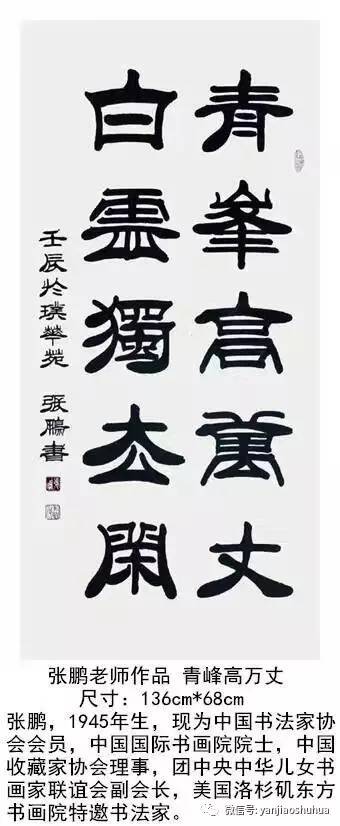 青峯高萬丈
白雲獨去閑
壬辰於璞華苑 張鵬書
张鹏老师作品 青峰高万丈
尺寸：136cm*68cm
张鹏，1945年生，现为中国书法家协
会会员，中国国际书画院院士，中国
收藏家协会理事，团中央中华儿女书
画家联谊会副会长，美国洛杉矶东方
书画院特邀书法家。
微信号: yanjiaoshuhua